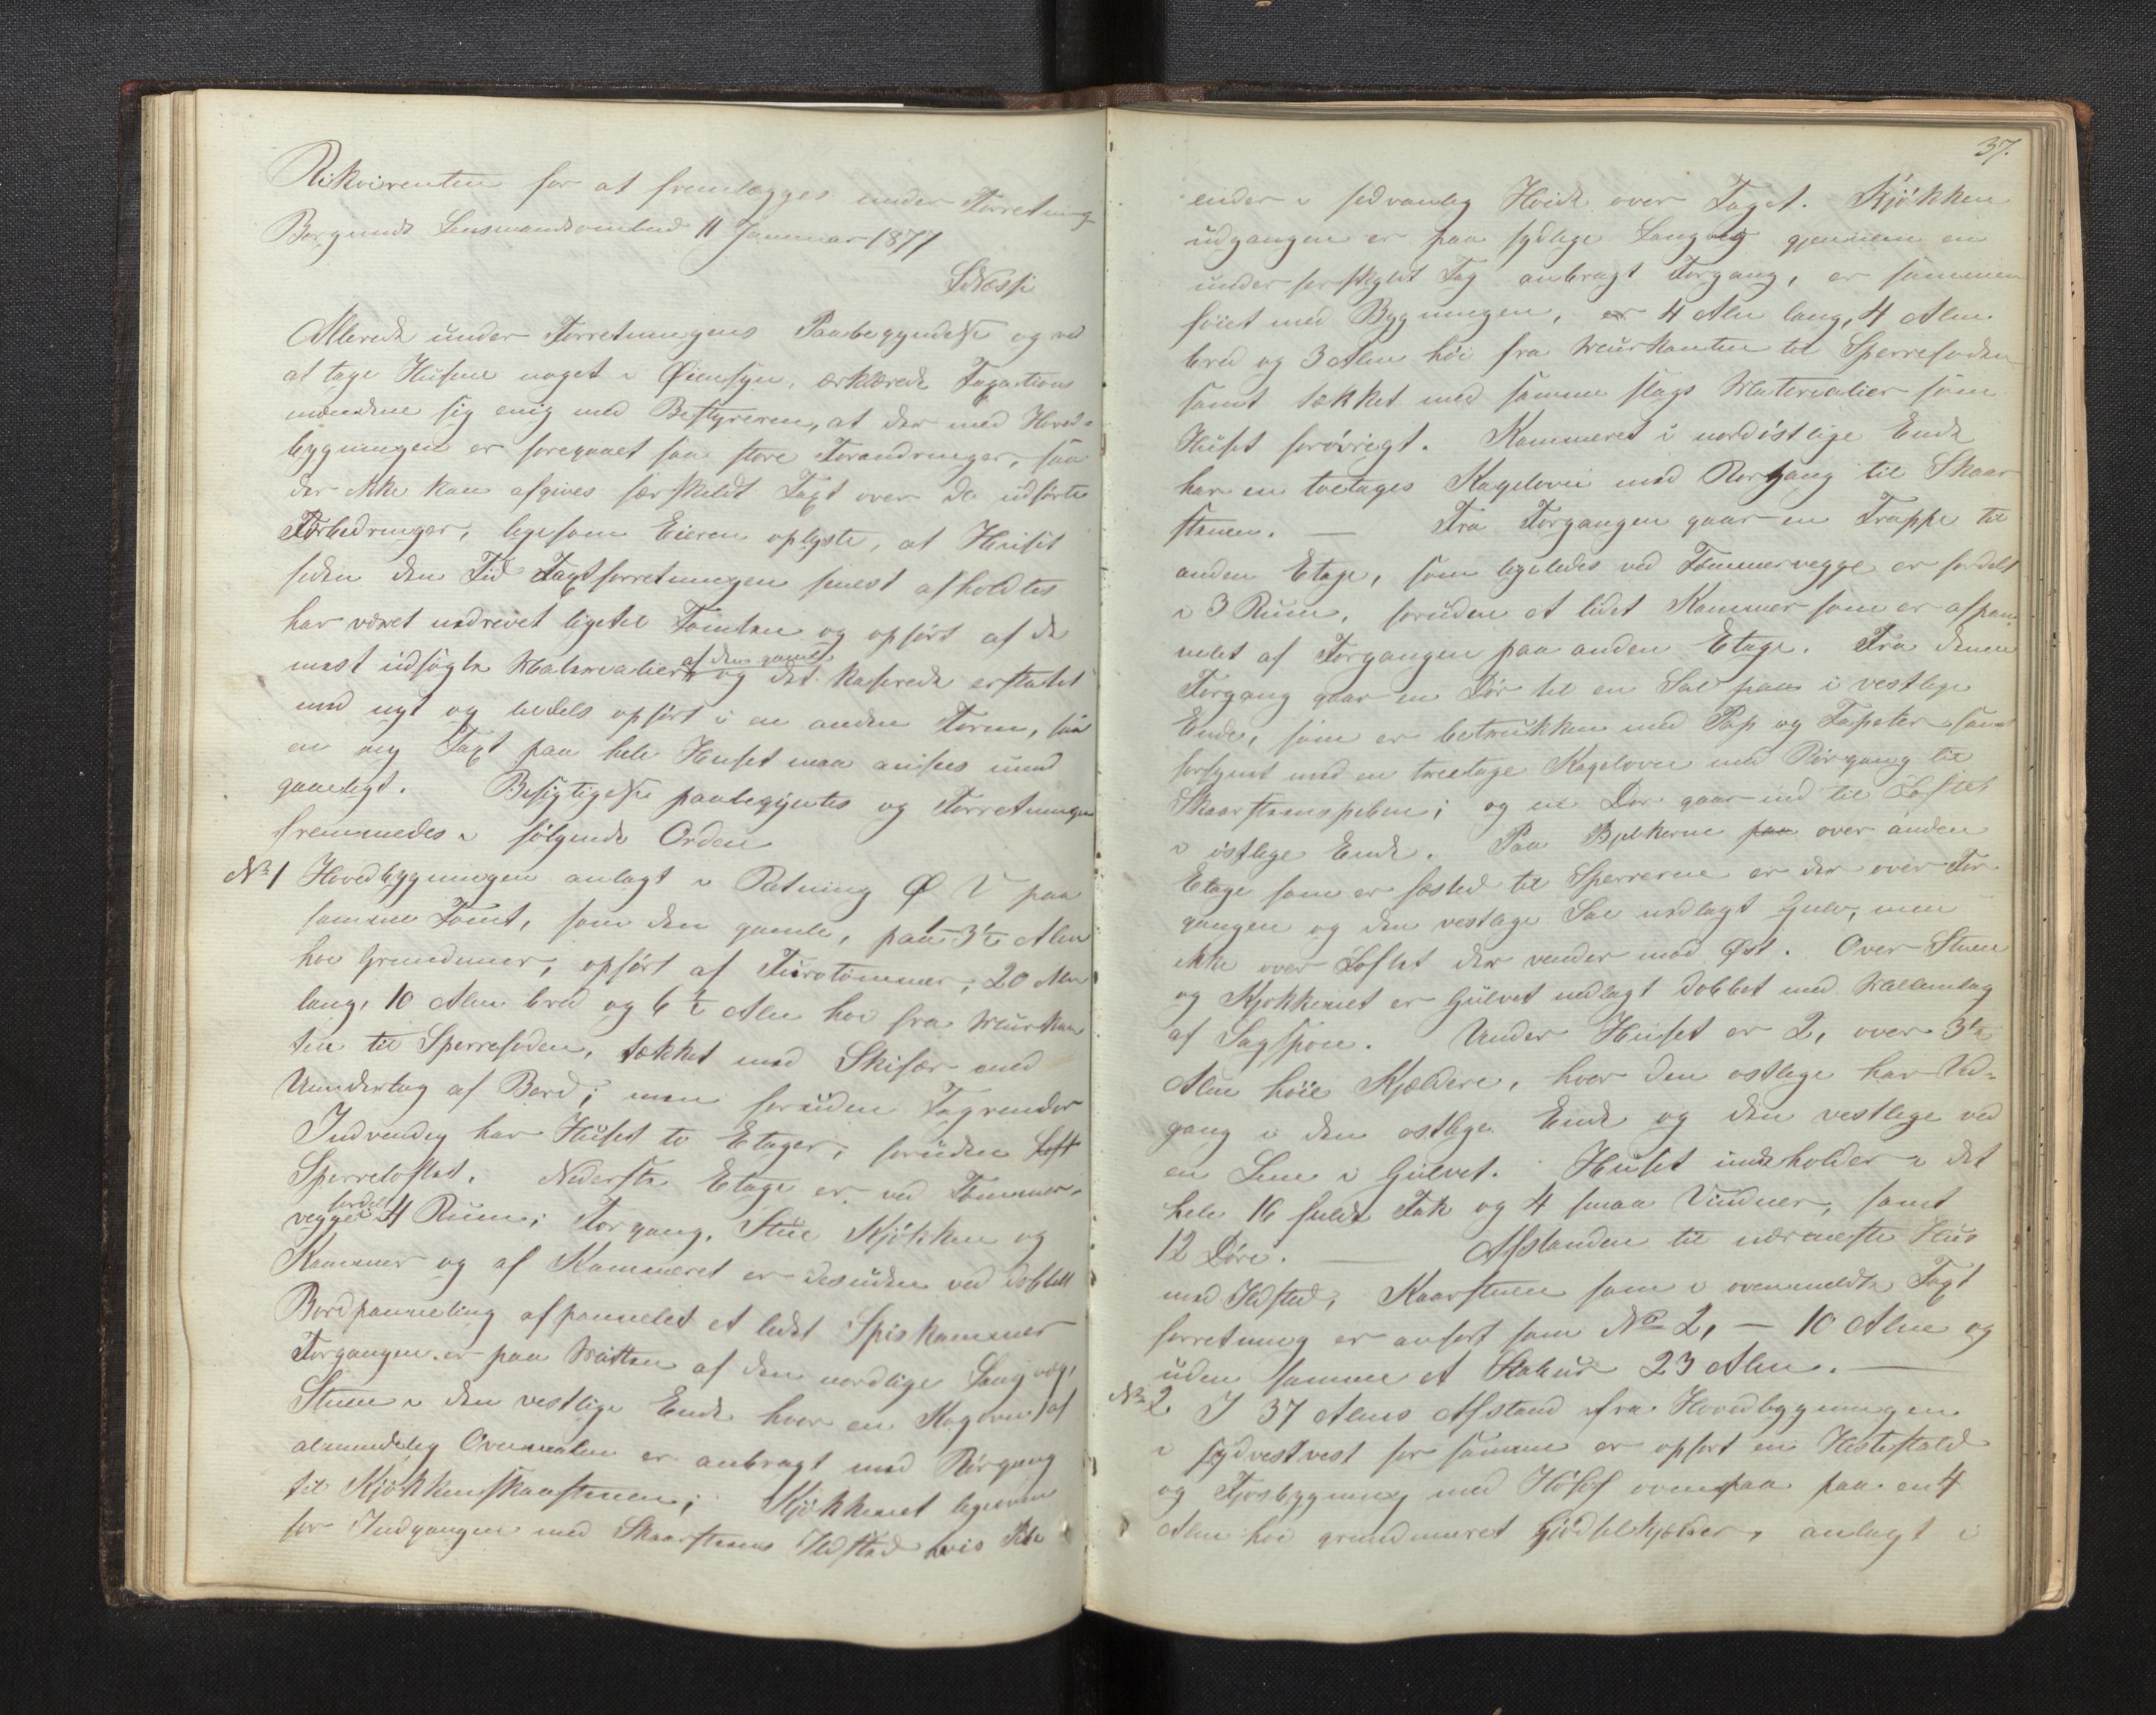 Rekvirenten for at fremlægges under Forretning
Borgunds Lensmandsombud 11 Januar 1877
Allerede under Forretningens Paabegyndelse og ved
at tage Husene noget i Øiensyn, erklærede Taxations
mændene sig enig med Bestyreren, at der med Hoved-
bygningen er foregaaet saa store Forandringer, saa
der ikke kan afgives særskildt Taxt over de udførte
Forbedringer, ligesom Eieren oplyste, at Huset
siden den Tid Taxtforretningen senest afholdtes
har været nedrevet ligetil Tomten og opført af de
mest udsøgte Materialier af den gamle og det kaserede erstatet
med nyt og andels opført i en anden Form, saa
en ny Taxt paa hele Huset maa ansees und
gaaeligt. Besigtigelse paabegyntes og Forretningen
fremmedes i følgende Orden
No 1 Hovedbygningen anlagt i Retning Ø V paa
samme Tomt, som den gamle, paa 1-3½ Alen
høi Grundmur, opført af Furutømmer, 20 Alen
lang, 10 Alen bred og 6½ Alen høi fra Murkan
ten til Sperrefoden, tækket med Skifer med
Undertag af Bord; men foruden Tagrender
Indvendig har Huset to Etager, foruden Loft
Sperreloftet. Nederste Etage er ved Tømmer-
vegge fordelt i 4 Rum; Forgang, Stue Kjøkken og
Kammer og af Kammeret er desuden ved dobbelt
Bordpanneling afpannelet et lidet Spiskammer
Forgangen er paa Midten af den nordlige Langvæg,
Stuen i den vestlige Ende hvor en Kogeovn af
almindelig Ovnmalm er anbragt med Rørgang
til Kjøkkenskaastenen; Kjøkkenet ligeoven
for Indgangen med Skaarstens Ildsted hvis Pibe
37.
ender i sedvanlig Høide over Taget. Kjøkken
udgangen er paa sydlige Langvæg gjennem en
under forskyldt Tag anbragt Forgang, er sammen
føiet med Bygningen, er 4 Alen lang, 4 Alen
bred og 3 Alen høi fra Murkanten til Sperrefoden
samt tækket med samme slags Materialier som
Huset forøvrigt. Kammeret i nordøstlige Ende
har en toetages Kagelovn med Rørgang til Skaar
stenen. — Fra Forgangen gaar en Trappe til
anden Etage, som ligeledes ved Tømmervegge er fordelt
i 3 Rum, foruden et lidet Kammer som er afpan
nelet af Forgangen paa anden Etage. Fra denne
Forgang gaar en Dør til en Sal paa i vestlige
Ende, som er betrukken med Pap og Tapeter samt
forsynet med en treetage Kagelovn med Rørgang til
Skaarstenspiben; og en Dør gaar ind til Loftet
i østlige Ende. Paa Bjelkerne paa over anden
Etage som er fæsted til Sperrerne er der over For
gangen og den vestlige Sal nedlagt Gulv, men
ikke over Loftet der vender mod Øst. Over Stuen
og Kjøkkenet er Gulvet nedlagt dobbet med Mellemlag
af Sagspon. Under Huset er 2, over 3½
Alen høie Kjældere, hvor den østlige har Ned-
gang i den østlige Ende og den vestlige ved
en Lem i Gulvet. Huset indeholder i det
hele 16 fulde Fak og 4 smaa Vinduer, samt
12 Døre. — Afstanden til nærmeste Hus
med Ildsted, Kaarstuen som i ovenmeldte Taxt
forretning er anført som No 2, — 10 Alen og
uden samme et Stabur 23 Alen. —
No 2 I 37 Alens Afstand fra Hovedbygningen
i sydvestvest for samme er opført en Hestestald
og Fjøsbygning med Hølof ovenpaa paa en 4
Alen høi grundmuret Gjødselkjælder, anlagt i